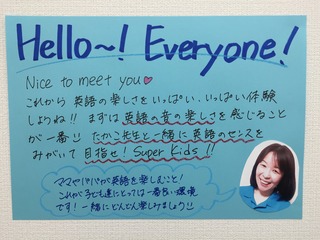 Hello~! Everyone!
Nice to meet you♥
これから 英語の楽しさをいっぱい、いっぱい体験
しようね!! まずは英語の音の楽しさを感じること
が一番☺ たかこ先生と一緒に英語のセンスを
みがいて 目指せ! Super Kids!!
ママやパパが英語を楽しむこと!
これが子ども達にとっては一番良い環境
です! 一緒にどんどん楽しみましょう☺